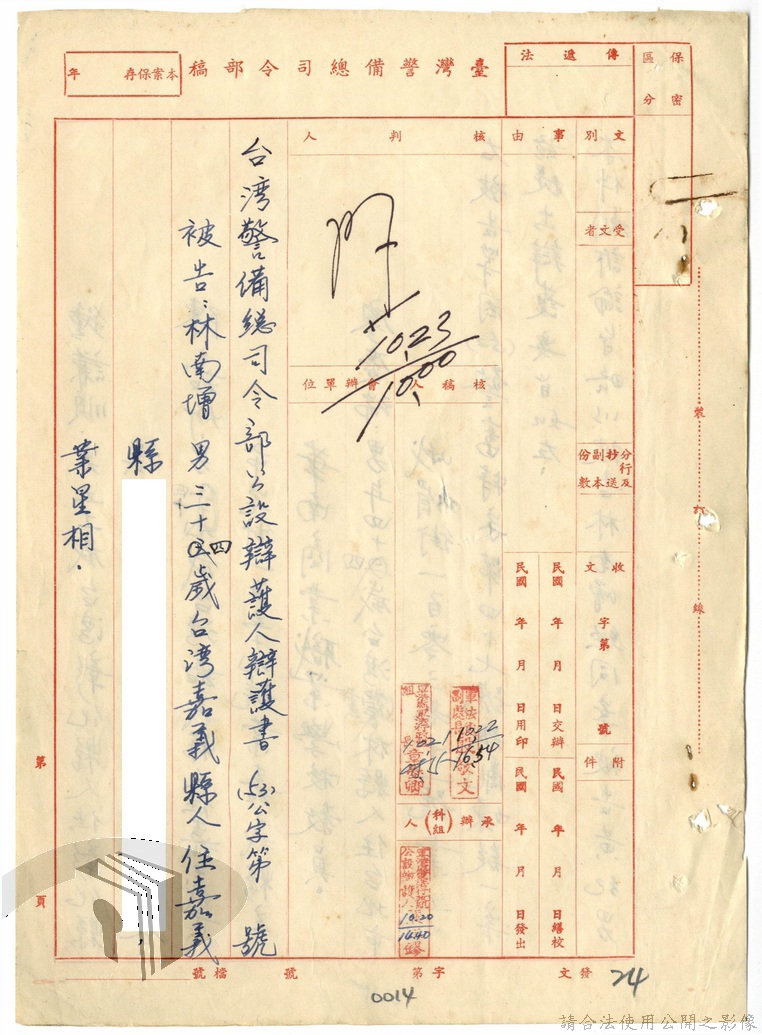 保密
區分
傳遞法
臺灣警備總司令部稿
本案保存　年
文別
受文者
分行及抄送副本份數
收文　字第　號
附件
事由
民國　年　月　日交辦
民國　年　月　日繕校
民國　年　月　日用印
民國　年　月　日發出
核判人
10.23
10.00
核稿人
會辦單位
10.22
16.54
承辦(科組)人
10.20
1440
台湾警備總司令部公設辯護人辯護書　(53)公字第　號
被告：林南增　男　三十四歲　台湾嘉義縣人住嘉義
縣
業星相。
裝訂線
第　頁
發文　字第　號　檔號
24
0014
請合法使用公開之影像